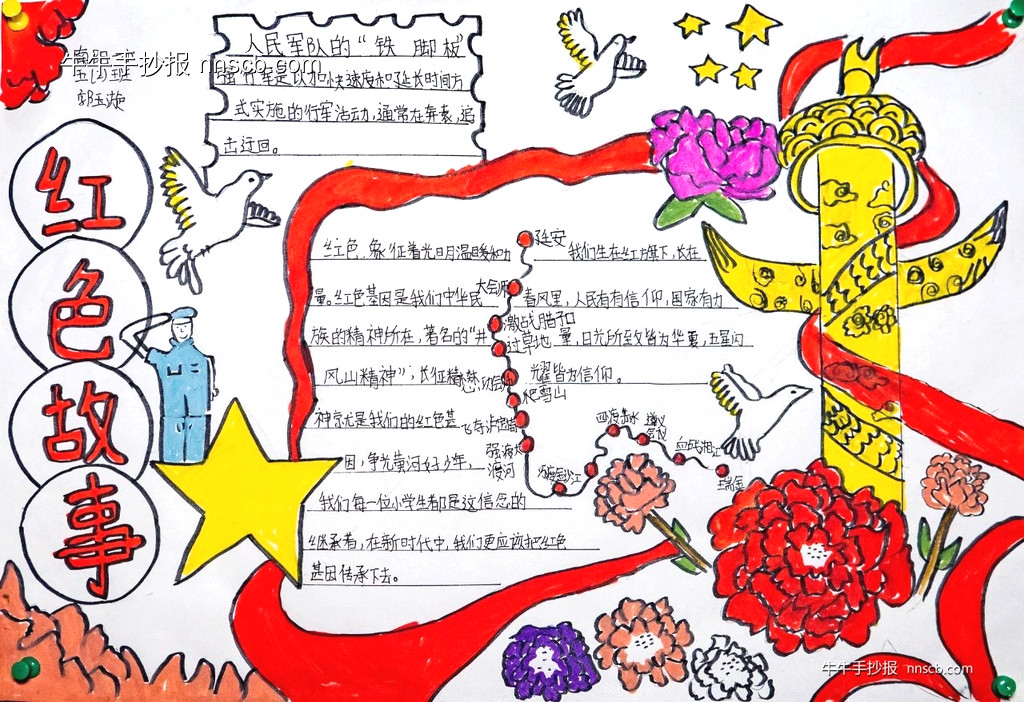 牛牛手抄报 nnscb.com
五(4)班
红色故事
人民军队的“铁 脚板”
强行军是以加快速度和延长时间方
式实施的行军活动,通常在奔袭,追
击迂回。
红色,象征着光明,温暖和力
量。红色基因是我们中华民
族的精神所在,著名的“井
风山精神”,长征精神
神京尤是我们的红色基
因,争光黄河好少年,
我们每一位小学生都是这信念的
继承者,在新时代中,我们更应该把红色
基因传承下去。
延安
大会师
激战腊子口
过草地
爬雪山
飞夺泸定桥
强渡大
渡河
巧渡金沙江
四渡赤水
遵义
会议
血战湘江
瑞金
我们生在红旗下,长在
春风里,人民有有信仰,国家有力
量,目光所至皆为华夏,五星闪
耀皆为信仰。
牛牛手抄报 nnscb.com